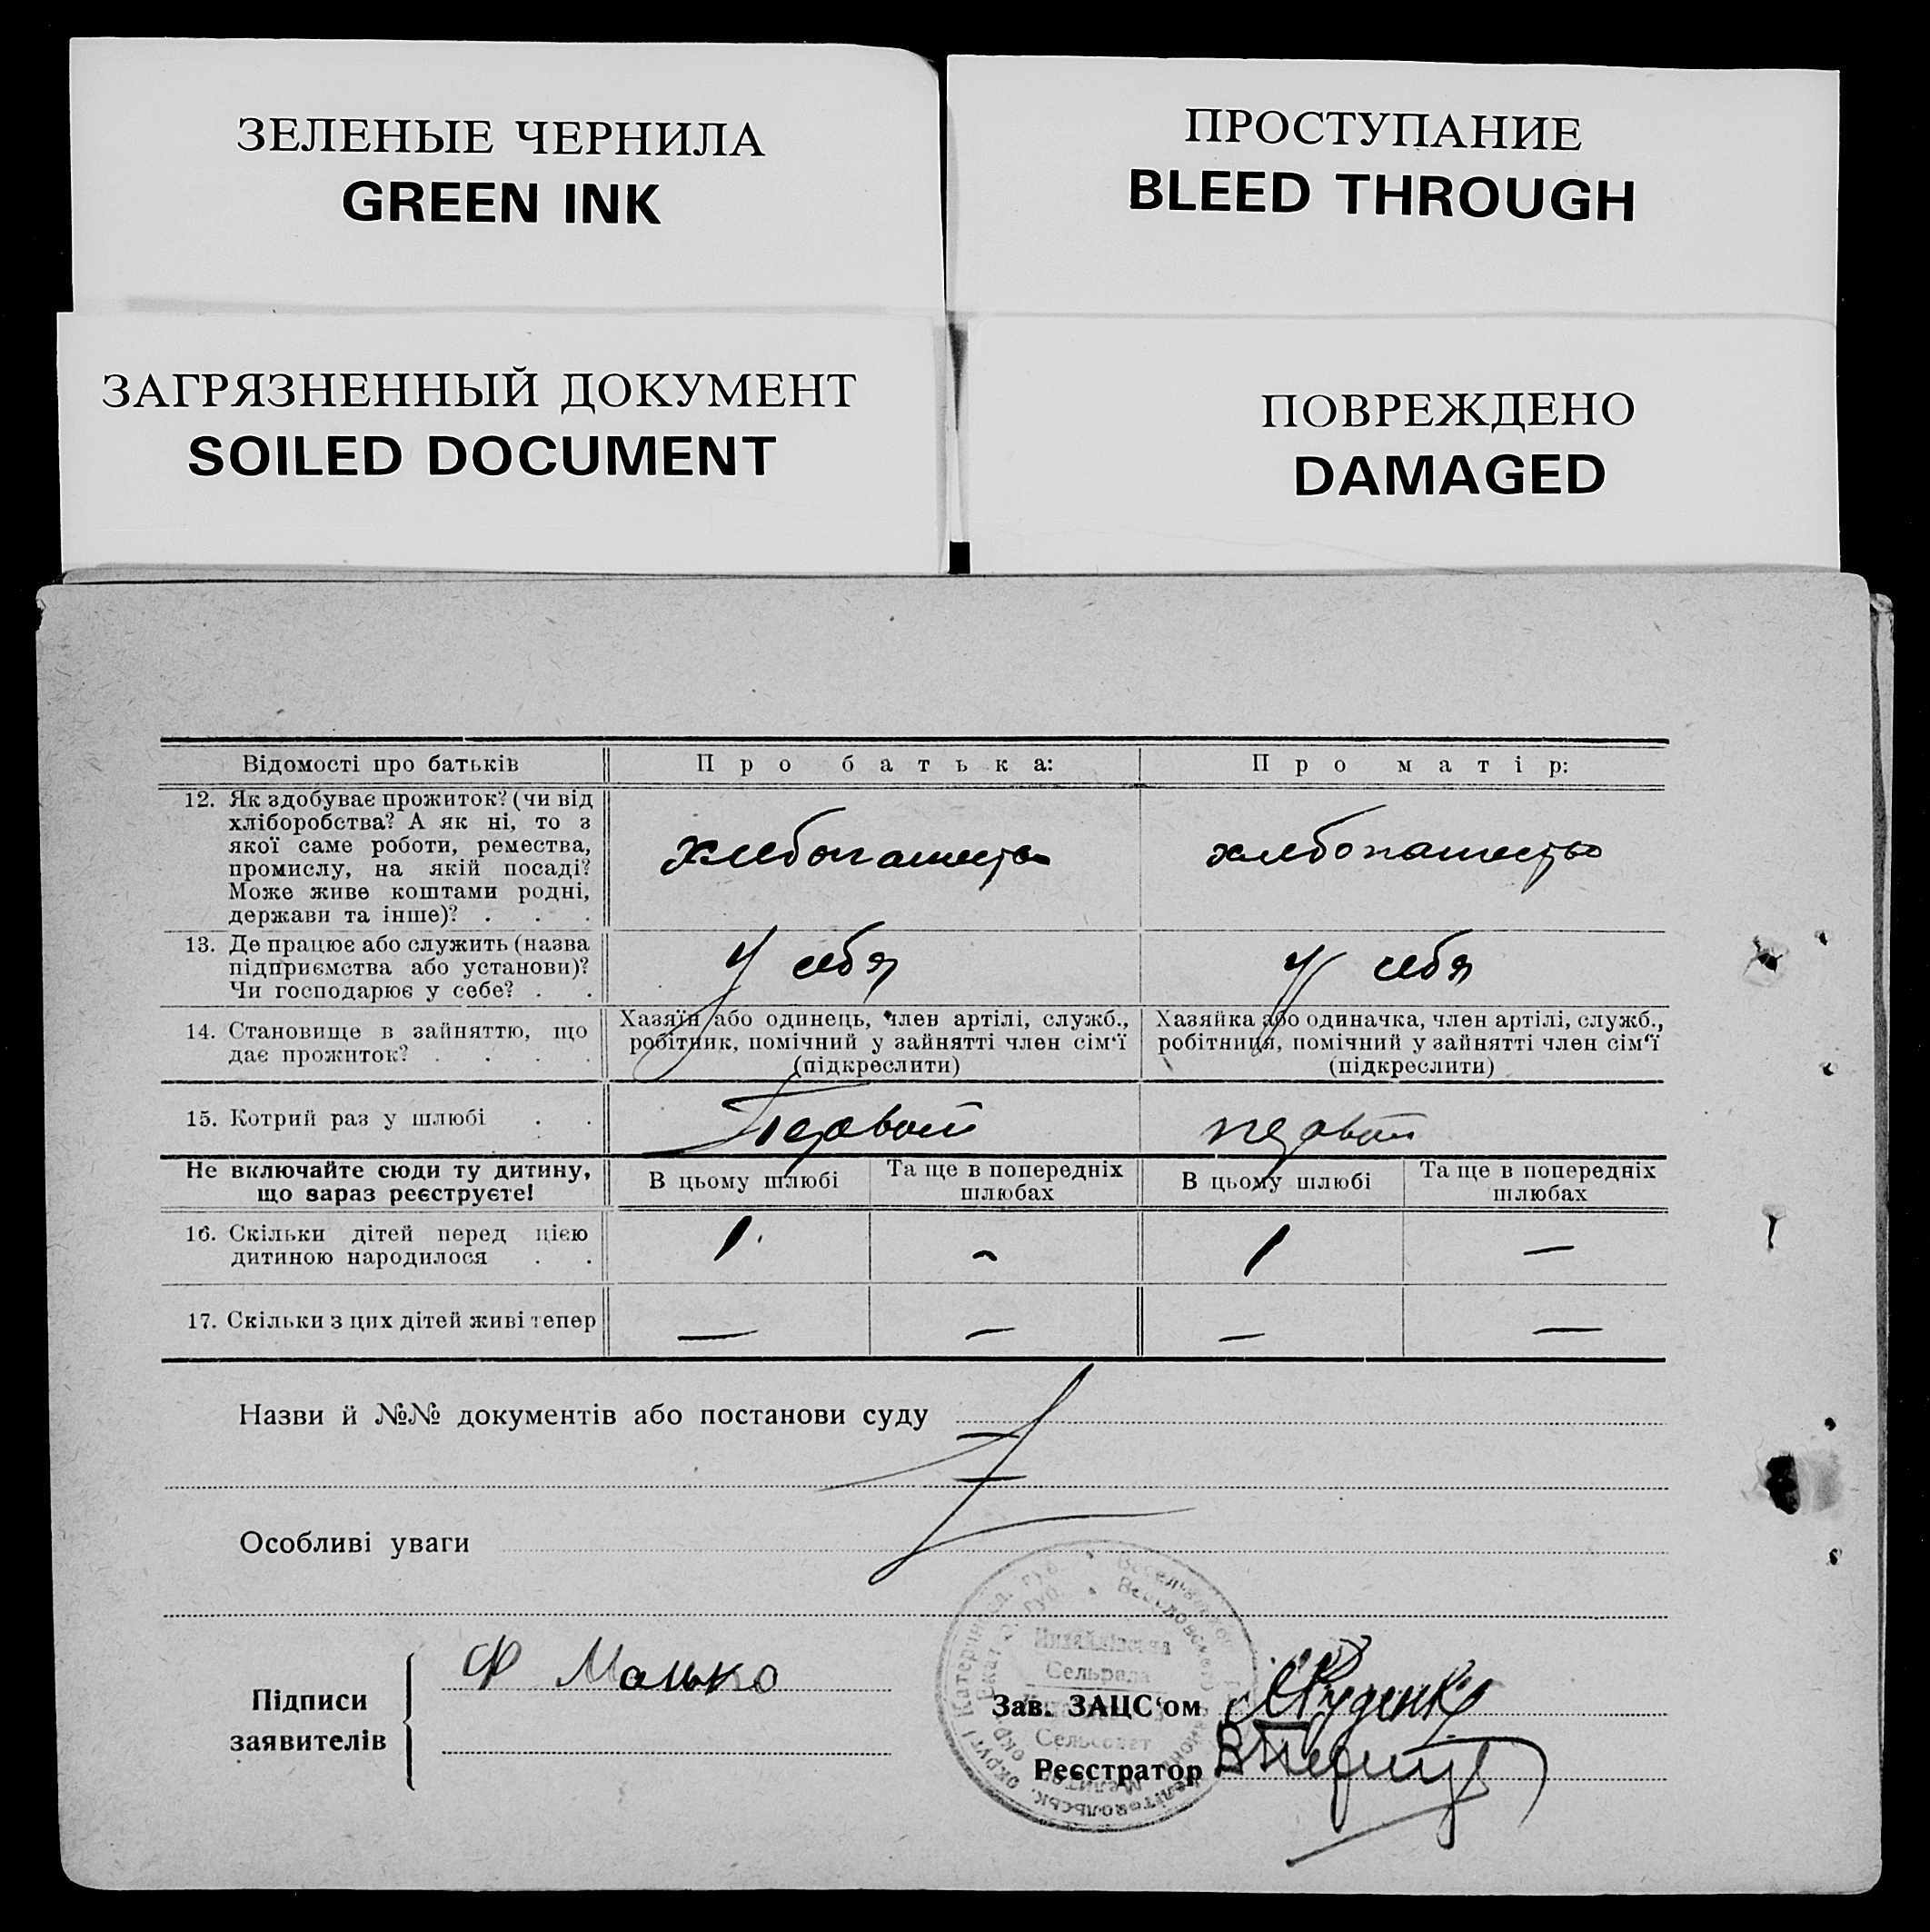 ЗЕЛЕНЫЕ ЧЕРНИЛА
GREEN INK
ПРОСТУПАНИЕ
BLEED THROUGH
ЗАГРЯЗНЕННЫЙ ДОКУМЕНТ
SOILED DOCUMENT
ПОВРЕЖДЕНО
DAMAGED
Відомості про батьків
Про батька:
Про матір:
12. Як здобуває прожиток? (чи від
хліборобства? А як ні, то з
якої саме роботи, ремества,
промислу, на якій посаді?
Може живе коштами родні,
держави та інше)? . . .
хлебопашество
хлебопашество
13. Де працює або служить (назва
підприємства або установи)?
Чи господарює у себе? . .
у себя
у себя
14. Становище в зайняттю, що
дає прожиток? . . . .
Хазяїн або одинець, член артілі, служб.,
робітник, помічний у зайнятті член сім‘ї
(підкреслити)
Хазяйка або одиначка, член артілі, служб.,
робітниця, помічний у зайнятті член сім‘ї
(підкреслити)
15. Котрий раз у шлюбі . .
Первый
первый
Не включайте сюди ту дитину,
що зараз реєструєте!
В цьому шлюбі
Та ще в попередніх
шлюбах
В цьому шлюбі
Та ще в попередніх
шлюбах
16. Скільки дітей перед цією
дитиною народилося . .
1.
-
1
—
17. Скільки з цих дітей живі тепер
—
—
—
—
Назви й №№ документів або постанови суду
Особливі уваги
Підписи
заявителів
Ф Малько
Сельрада
Сельсовет
Зав. ЗАЦС‘ом
Руденко
Реєстратор